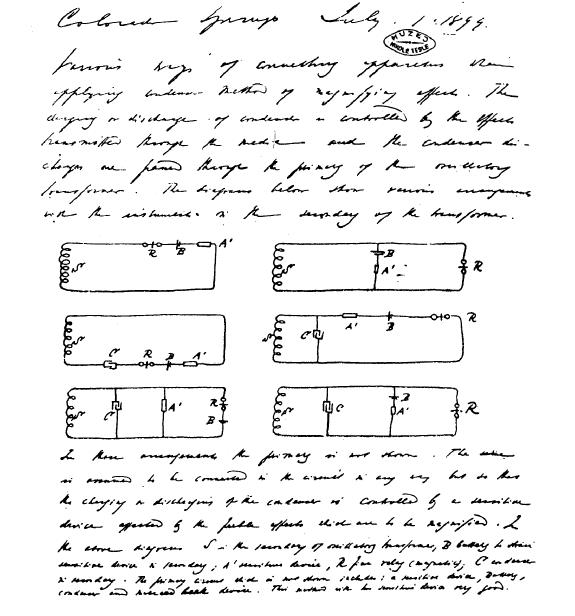 Colorado Springs July. 1. 1899.
MUZEJ
NIKOLE TESLE
Various ways of connecting apparatus when
applying condenser method of magnifying effects. The
charging or discharge of condenser is controlled by the effects
transmitted through the media and the condenser dis-
charges are passed through the primary of the oscillatory
transformer. The diagrams below show various arrangements
with the instruments in the secondary of the transformer.
S R B A'
S B A' R
S C R B A'
S C A' B R
S C A' R B
S C B A' R
In these arrangements the primary is not shown. The same
is assumed to be connected in the circuit in any way but so that
the charging or discharging of the condenser is controlled by a sensitive
device affected by the feeble effects which are to be magnified. In
the above diagrams S is the secondary of oscillatory transformer, B battery to strain
sensitive device in secondary; A' sensitive device, R fine relay (magnetic); C condenser
in secondary. The primary circuit which is not shown includes: a sensitive device, battery,
condenser and device. This method with the sensitive device very good.